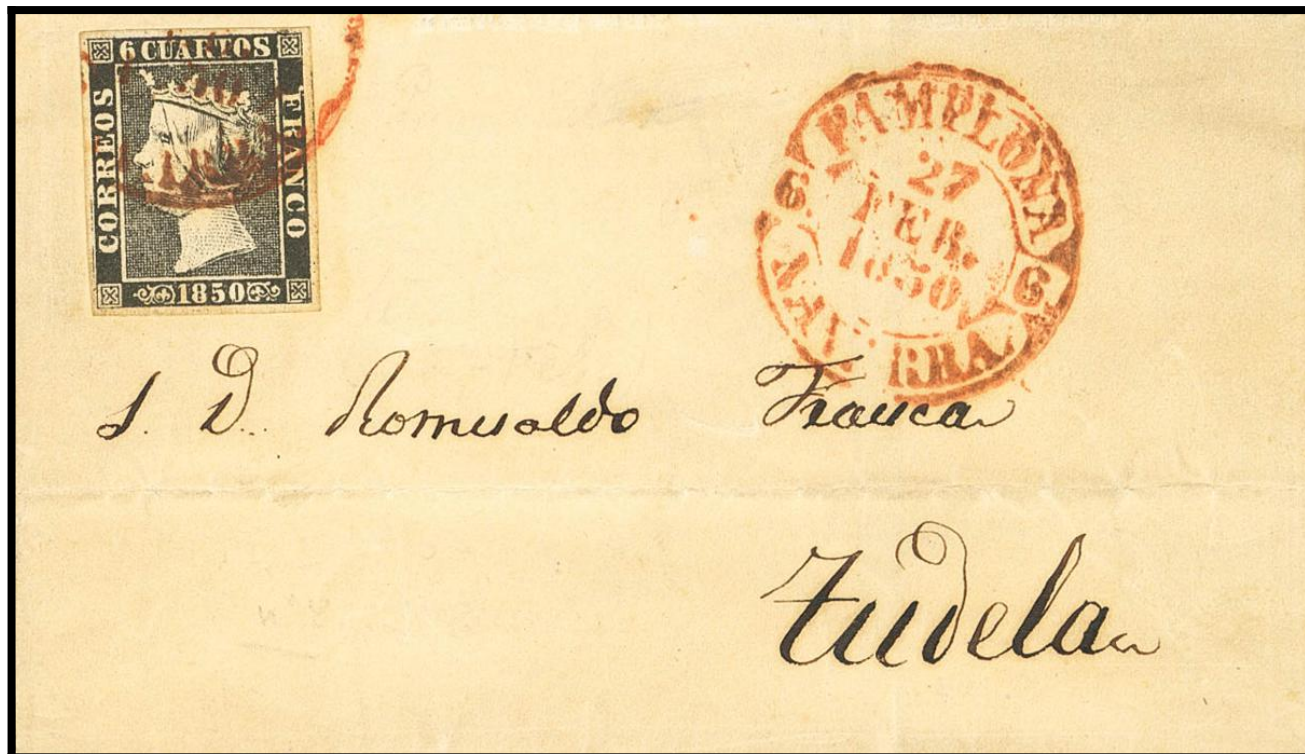 6 CUARTOS
CORREOS
FRANCO
1850
PAMPLONA
27
FEB.
1850
6
6
NAVARRA
S. D. Romualdo Franca
Tudela